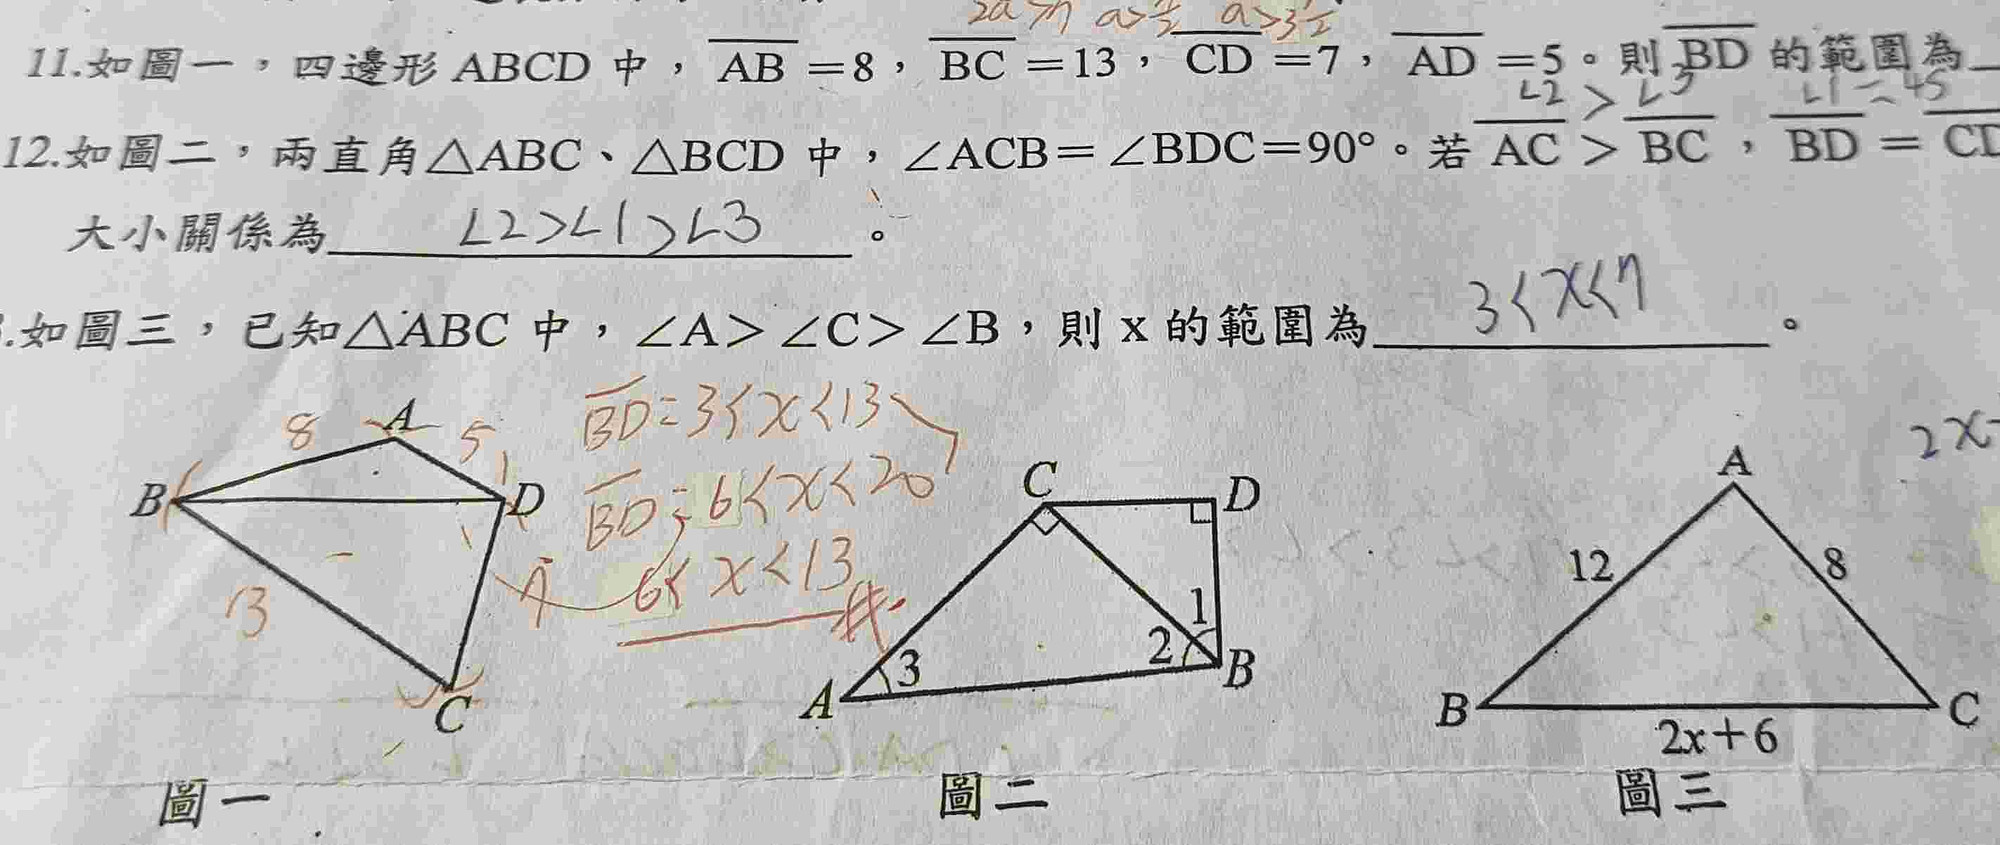 2a>7 a>7/2 a>3 1/2
11.如圖一，四邊形 ABCD 中，AB=8，BC=13，CD=7，AD=5。則 BD 的範圍為
∠2 > ∠3 ∠1=45
12.如圖二，兩直角△ABC、△BCD 中，∠ACB=∠BDC=90°。若 AC > BC，BD = CD
大小關係為 ∠2>∠1>∠3 。
.如圖三，已知△ABC 中，∠A>∠C>∠B，則 x 的範圍為 3<x<7 。
BD=3<x<13
BD=6<x<20
6<x<13 #
A 8 5 B D 13 7 C
C D 1 2 B 3 A
2x
A 12 8 B C 2x+6
圖一 圖二 圖三